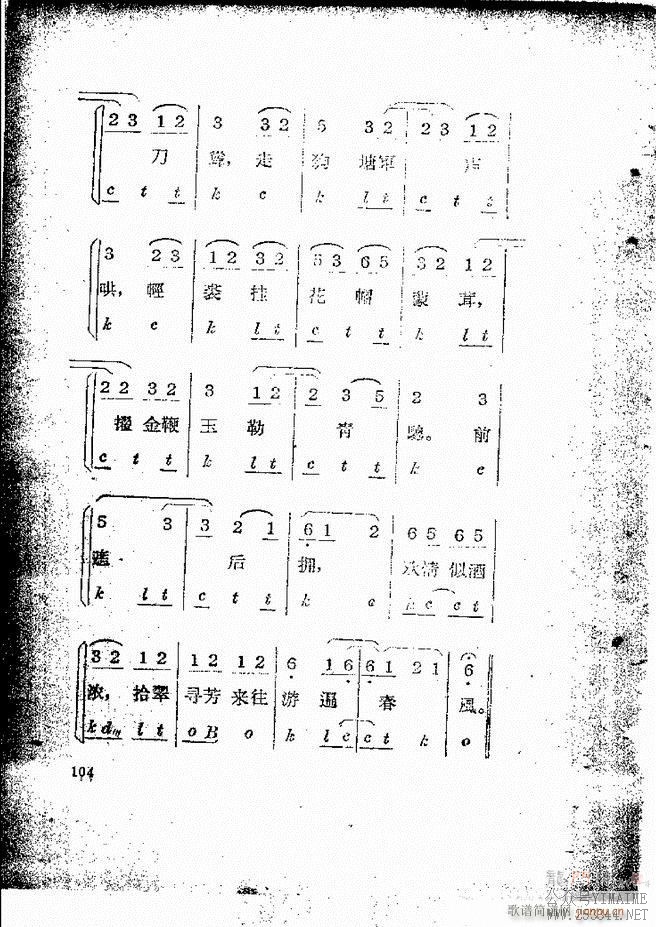 2 3 1 2 | 3 3 2 | 5 3 2 | 2 3 1 2
刀 走 狗 塘
c t t | k c | k l t | c t t
3 2 3 | 1 2 3 2 | 5 3 6 5 | 3 2 1 2
哄, 輕 裘 挂 花 帽 蒙 茸,
k c | k l t | c t t | k l t
2 2 3 2 | 3 1 2 | 2 3 5 | 2 3
擺 金鞭 玉 勒 青 驄。 前
c t t | k l t | c t t | k c
5 3 | 3 2 1 | 6 1 2 | 6 5 6 5
后 拥, 欢情 似酒
k l t | c t t | k c | k c c t
3 2 1 2 | 1 2 1 2 | 6 1 6 | 6 1 2 1 | 6
浓, 拾翠 寻芳 来往 游 遍 春 風。
l t | o B o | k l c | c t k | o
104
公众号YIMAIME
歌谱简谱网
www.253844.NET